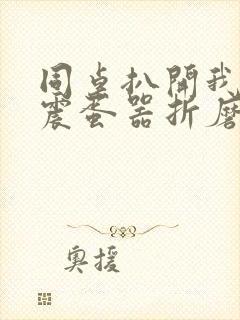 同桌扒開我
震蛋器折磨
奧援